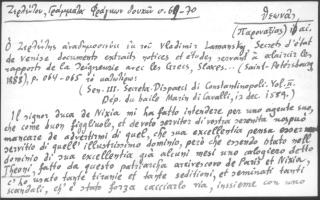 Ζερλέντου, Γράμματα Φράγκων δουκῶν σ. 69-70
Θεωνᾶς
(Παροναξίας)
Ὁ Ζερλέντης ἀναδημοσιεύει ἐκ τοῦ Vladimir Lamansky, Secrets d'état
de Venise documents extraits notices et études servant à éclaircir les
rapports de la Seigneurie avec les Grecs, Slaves... (Saint-Pétersbourg
1884), p. 064-065 τὸ
(Sen. III. Secreta. Dispacci di Constantinopoli. Vol. II.
Dép. du baile Marin di Cavalli, 13 déc. 1559.)
Il signor duca de Nixia. mi ha fatto intendere per uno agente suo,
che come buon figgliuolo, et devoto servitor di vostra serenità non può
mancare de advertirmi di quel, che sua excellentia pensa esser
servitio di quell' illustrissimo dominio, però che essendo stato nell
dominio di sua excellentia già alcuni mesi uno calogiero detto
Theoni, fatto da questo patriarcha arcivescovo de Paris et Nixia,
c'ha usato tante tiranie et tante seditioni, et seminati tanti
scandali, ch' è stato forza cacciarlo via, insieme con uno